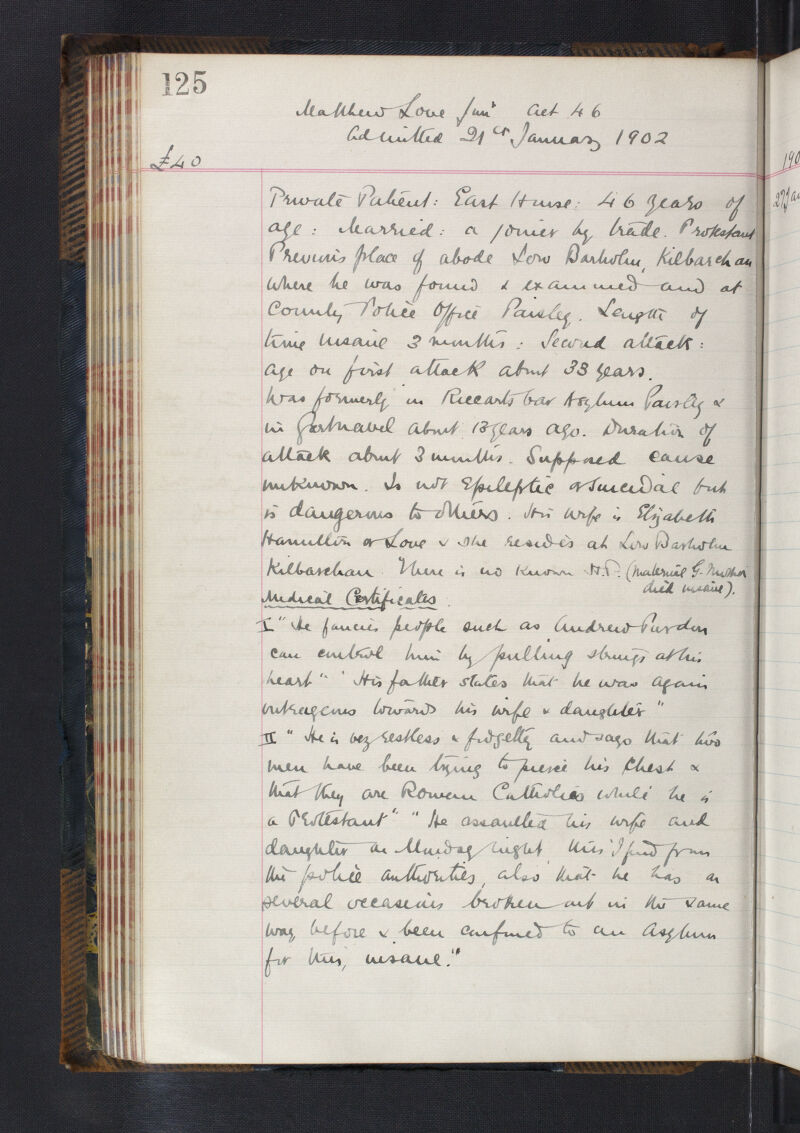 125
Matthew Love Junr aet 46
Admitted 21st January 1902
£40
Private Patient: East House: 46 years of
age: Married: a joiner by trade. Protestant
Previous place of abode Low Barholm, Kilbarchan
where he was found & examined and at
County Police Office Paisley. Length of
time insane 3 months: Second attack:
age on first attack about 33 years.
Was formerly in Riccartsbar Asylum Paisley &
in Gartnavel about 13 years ago. Duration of
attack about 3 months. Supposed cause
unknown. Is not Epileptic or Suicidal but
is dangerous to others. His wife is Elizabeth
Hamilton or Love & she resides at Low Barholm
Kilbarchan. There is no known H.P. (maternal G. Mother
died insane).
Medical Certificates.
I "He fancies people such as Andrew Purdon
can control him by pulling strings at his
heart" "His father states that he was again
outrageous towards his wife & daughter"
II "He is very restless & fidgetty and says that two
men have been trying to pierce his chest &
that they are Roman Catholics while he is
a Protestant" "He assaulted his wife and
daughter on Monday night, this I find from
the police authorities, also that he has on
several occasions broken out in the same
way before & been confined to an Asylum
for this, insane."
190
27 Jan